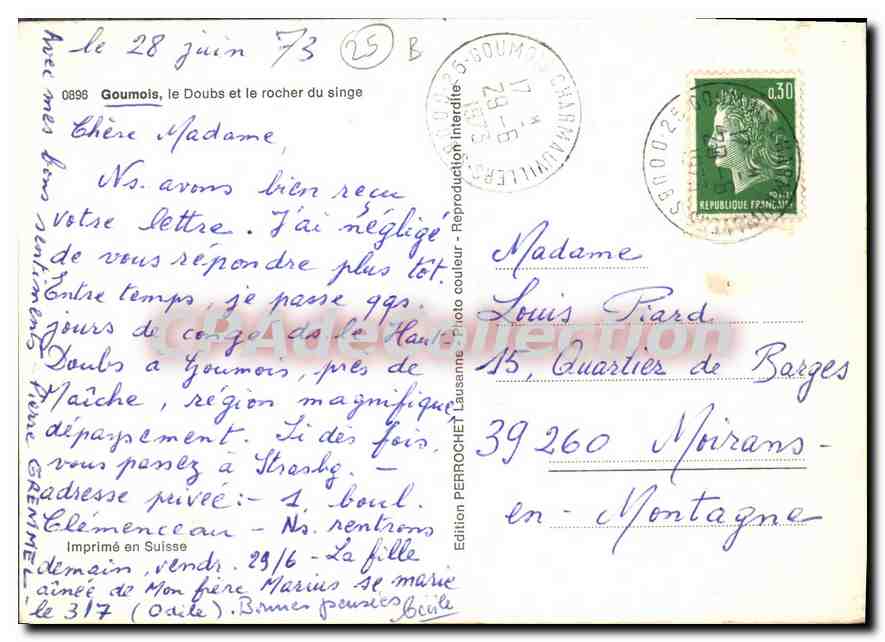 le 28 juin 73 (25) B
0896 Goumois, le Doubs et le rocher du singe
Chère Madame,
Ns. avons bien reçu
votre lettre. J'ai négligé
de vous répondre plus tôt.
Entre temps, je passe qqs.
jours de congé ds le Haut-
Doubs à Goumois, près de
Maîche, région magnifique,
dépaysement. Si dès fois
vous passez à Strasbg. -
adresse privée :- 1, boul.
Clémenceau - Ns. rentrons
Imprimé en Suisse
demain, vendr. 29/6 - La fille
aînée de Mon frère Marius se marie
le 3/7 (Odile). Bonnes pensées
Cécile
Avec mes bons sentiments Pierre GREMMEL
Edition PERROCHET Lausanne - Photo couleur - Reproduction Interdite
25-GOUMOIS-CHARMAUVILLERS
17 H
29-6
1973
0,30
REPUBLIQUE FRANÇAISE
Madame
Louis Piard
15, Quartier de Barges
39 260 Moirans-
en-Montagne
CPAdeCollection